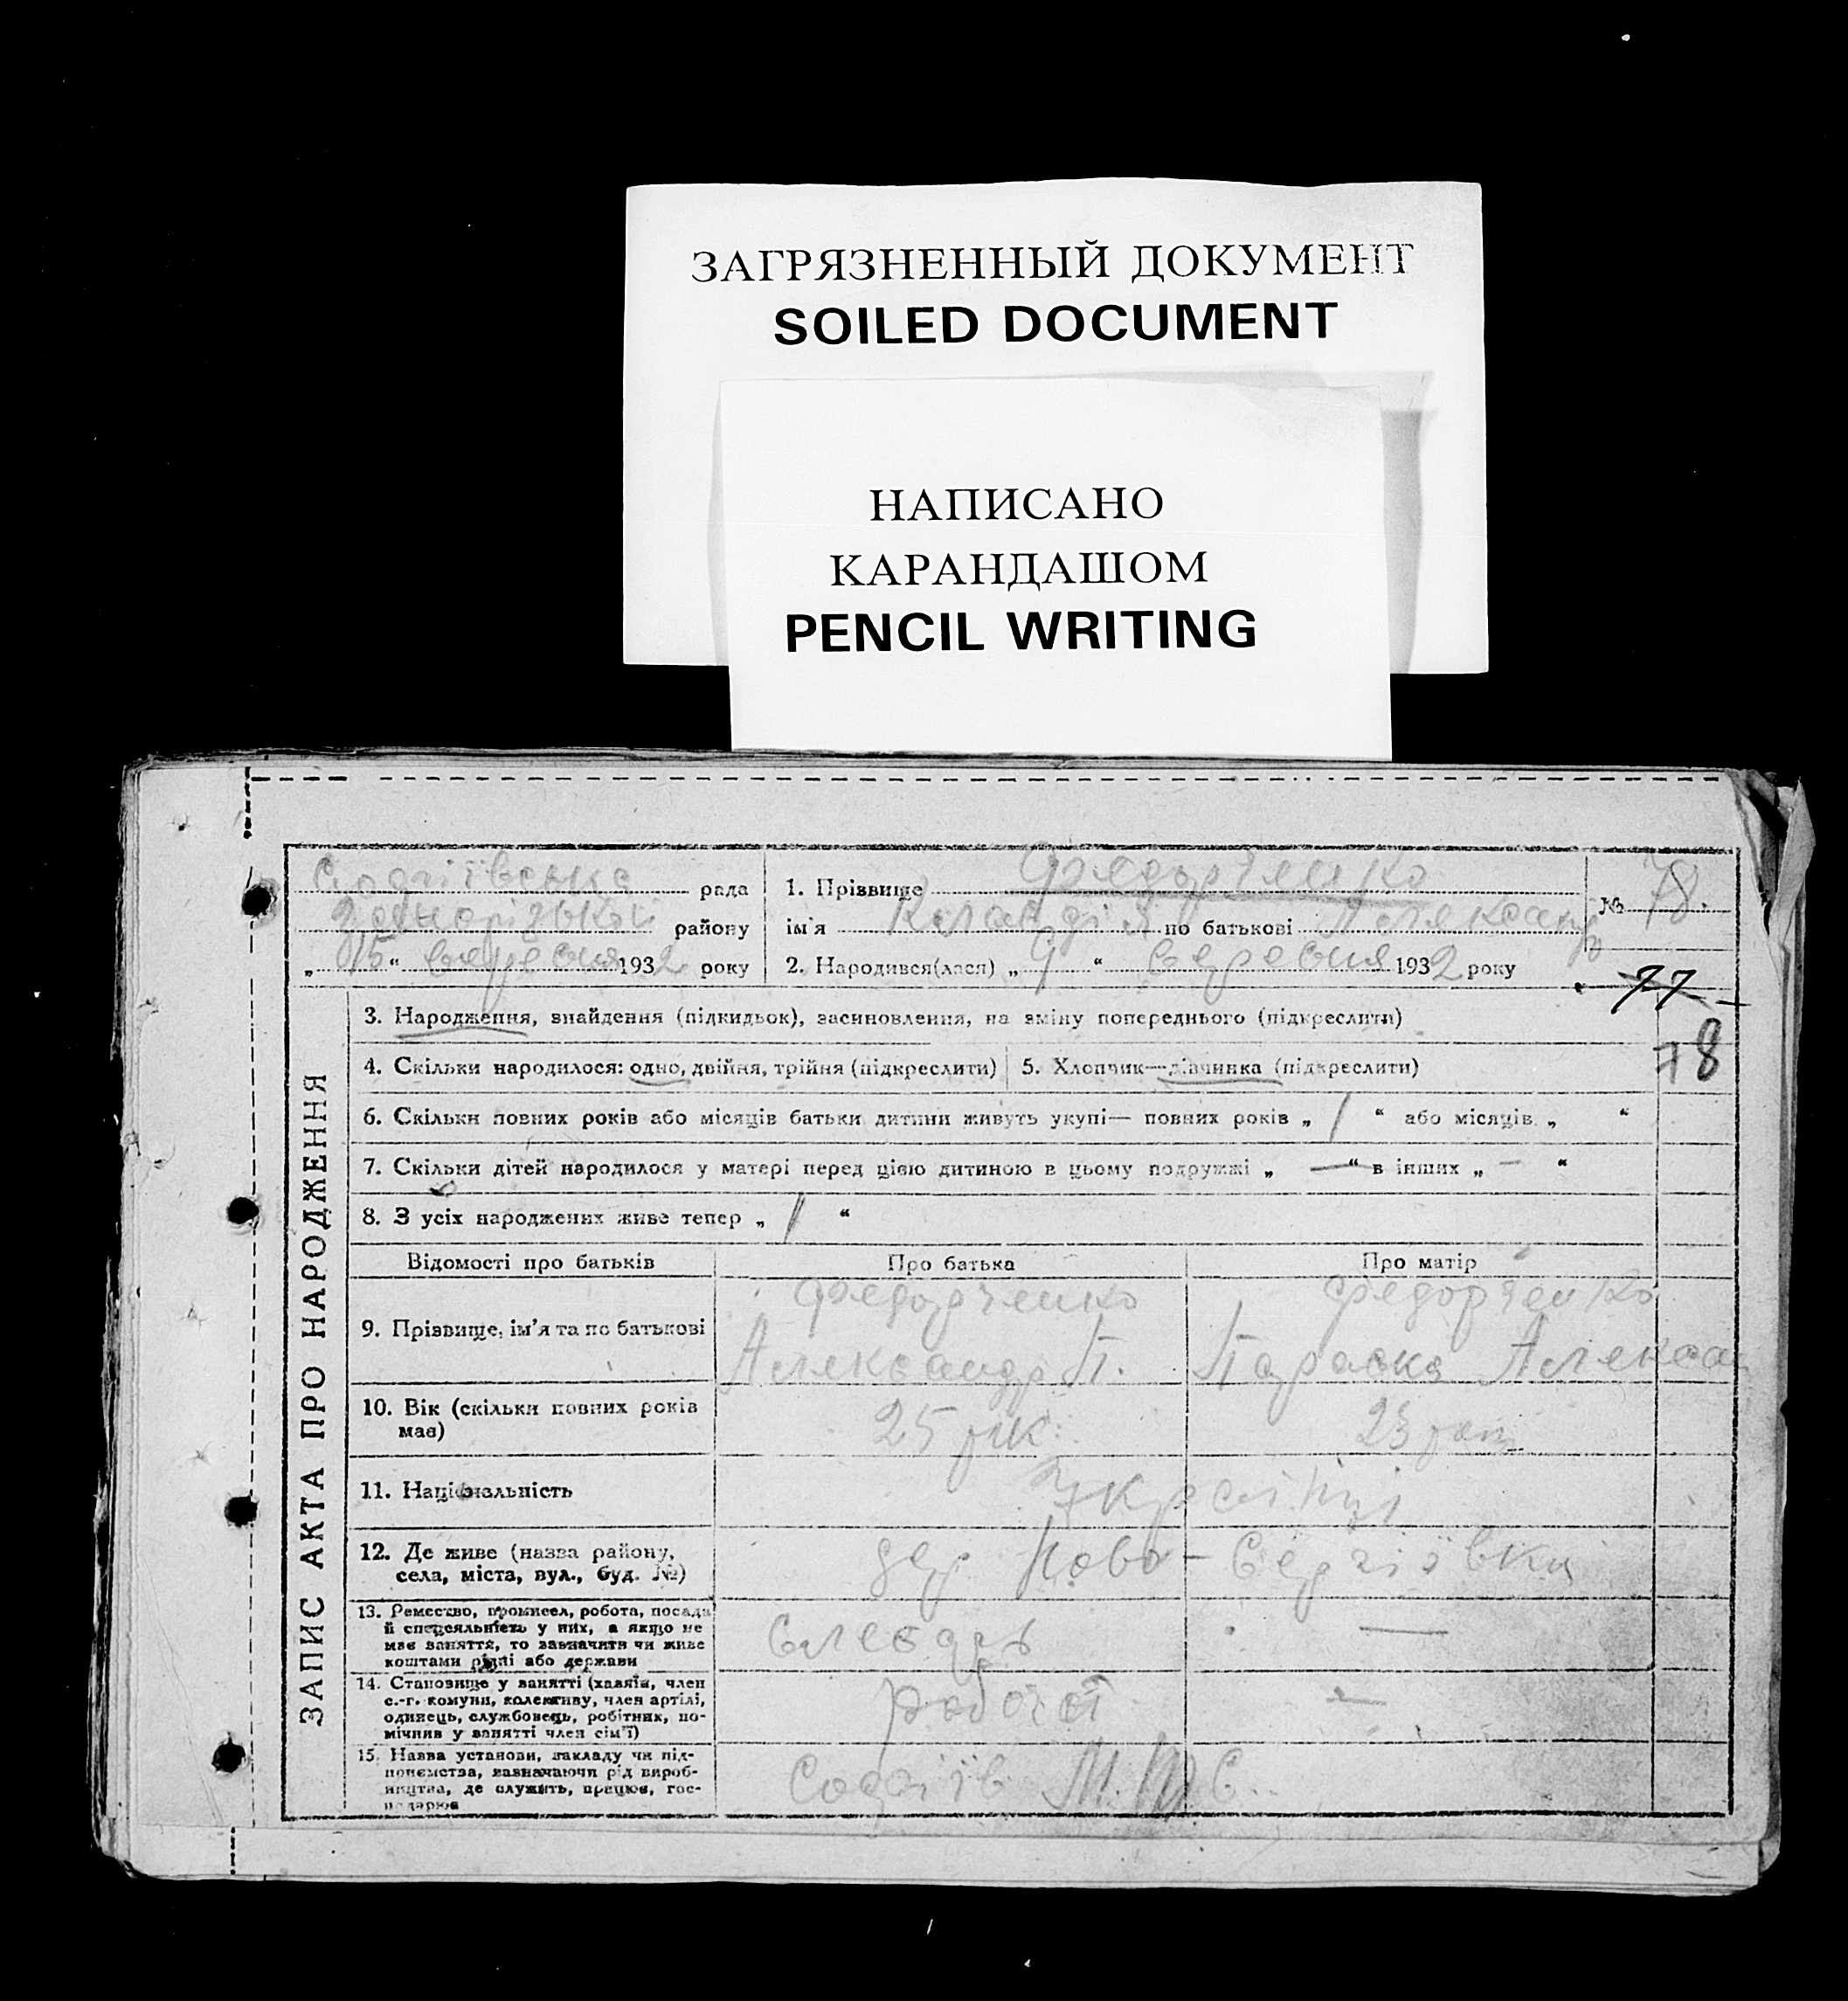 ЗАГРЯЗНЕННЫЙ ДОКУМЕНТ
SOILED DOCUMENT
НАПИСАНО
КАРАНДАШОМ
PENCIL WRITING
рада
району
„15“ вересня 1932 року
1. Прізвище Федорченко
ім'я Клавдія по батькові Александр
2. Народився(лася) „9“ вересня 1932 року
№ 78.
77
78
ЗАПИС АКТА ПРО НАРОДЖЕННЯ
3. Народження, знайдення (підкидьок), засиновлення, на зміну попереднього (підкреслити)
4. Скільки народилося: одно, двійня, трійня (підкреслити)
5. Хлопчик—дівчинка (підкреслити)
6. Скільки повних років або місяців батьки дитини живуть укупі— повних років „1“ або місяців „ “
7. Скільки дітей народилося у матері перед цією дитиною в цьому подружжі „—“ в інших „—“
8. З усіх народжених живе тепер „1“
Відомості про батьків Про батька Про матір
9. Прізвище, ім'я та по батькові
Федорченко Федорченко
Александр П. Параска Алекса
10. Вік (скільки повних років
має)
25 рик. 23 роки
11. Національність
Українці
12. Де живе (назва району,
села, міста, вул., буд. №)
дер Ново-Сергіївки
13. Ремество, промисел, робота, посада
й спеціяльність у них, а якщо не
має заняття, то зазначити чи живе
коштами рідні або держави
слесарь —
14. Становище у занятті (хазяїн, член
с.-г. комуни, колективу, член артілі,
одинець, службовець, робітник, по-
мічник у занятті член сім'ї)
рабочий —
15. Назва установи, закладу чи під-
приємства, зазначаючи рід вироб-
ництва, де служить, працює, гос-
подарює
М.Т.С.